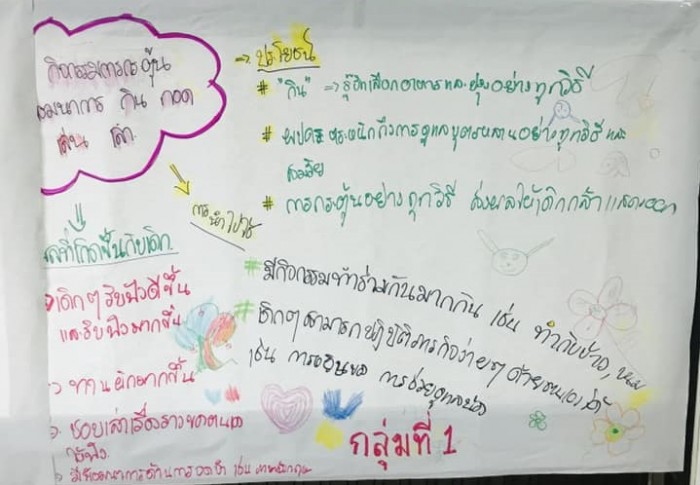 กิจกรรมการกระตุ้น
พัฒนาการ กิน กอด
เล่น เล่า
⇒ ประโยชน์
# "กิน" ⇒ รู้จักเลือกอาหารและปรุงอย่างถูกวิธี
# ผปค. ตระหนักถึงการดูแลบุตรหลานอย่างถูกวิธี และ
# การกระตุ้นอย่างถูกวิธี ส่งผลให้เด็กกล้าแสดงออก
การนำไปใช้
# มีกิจกรรมทำร่วมกันมากขึ้น เช่น ทำกับข้าว,
# เด็กๆสามารถปฏิบัติภารกิจง่ายๆด้วยตนเองได้
เช่น การช่วยดูแลน้อง
ผลที่เกิดขึ้นกับเด็ก
เด็กๆรับฟังดีขึ้น
และรับฟังมากขึ้น
> ทานผักมากขึ้น
> ชอบเล่าเรื่องราวของตนเอง
ให้ฟัง
> มีพัฒนาการด้านการ เช่น
กลุ่มที่ 1